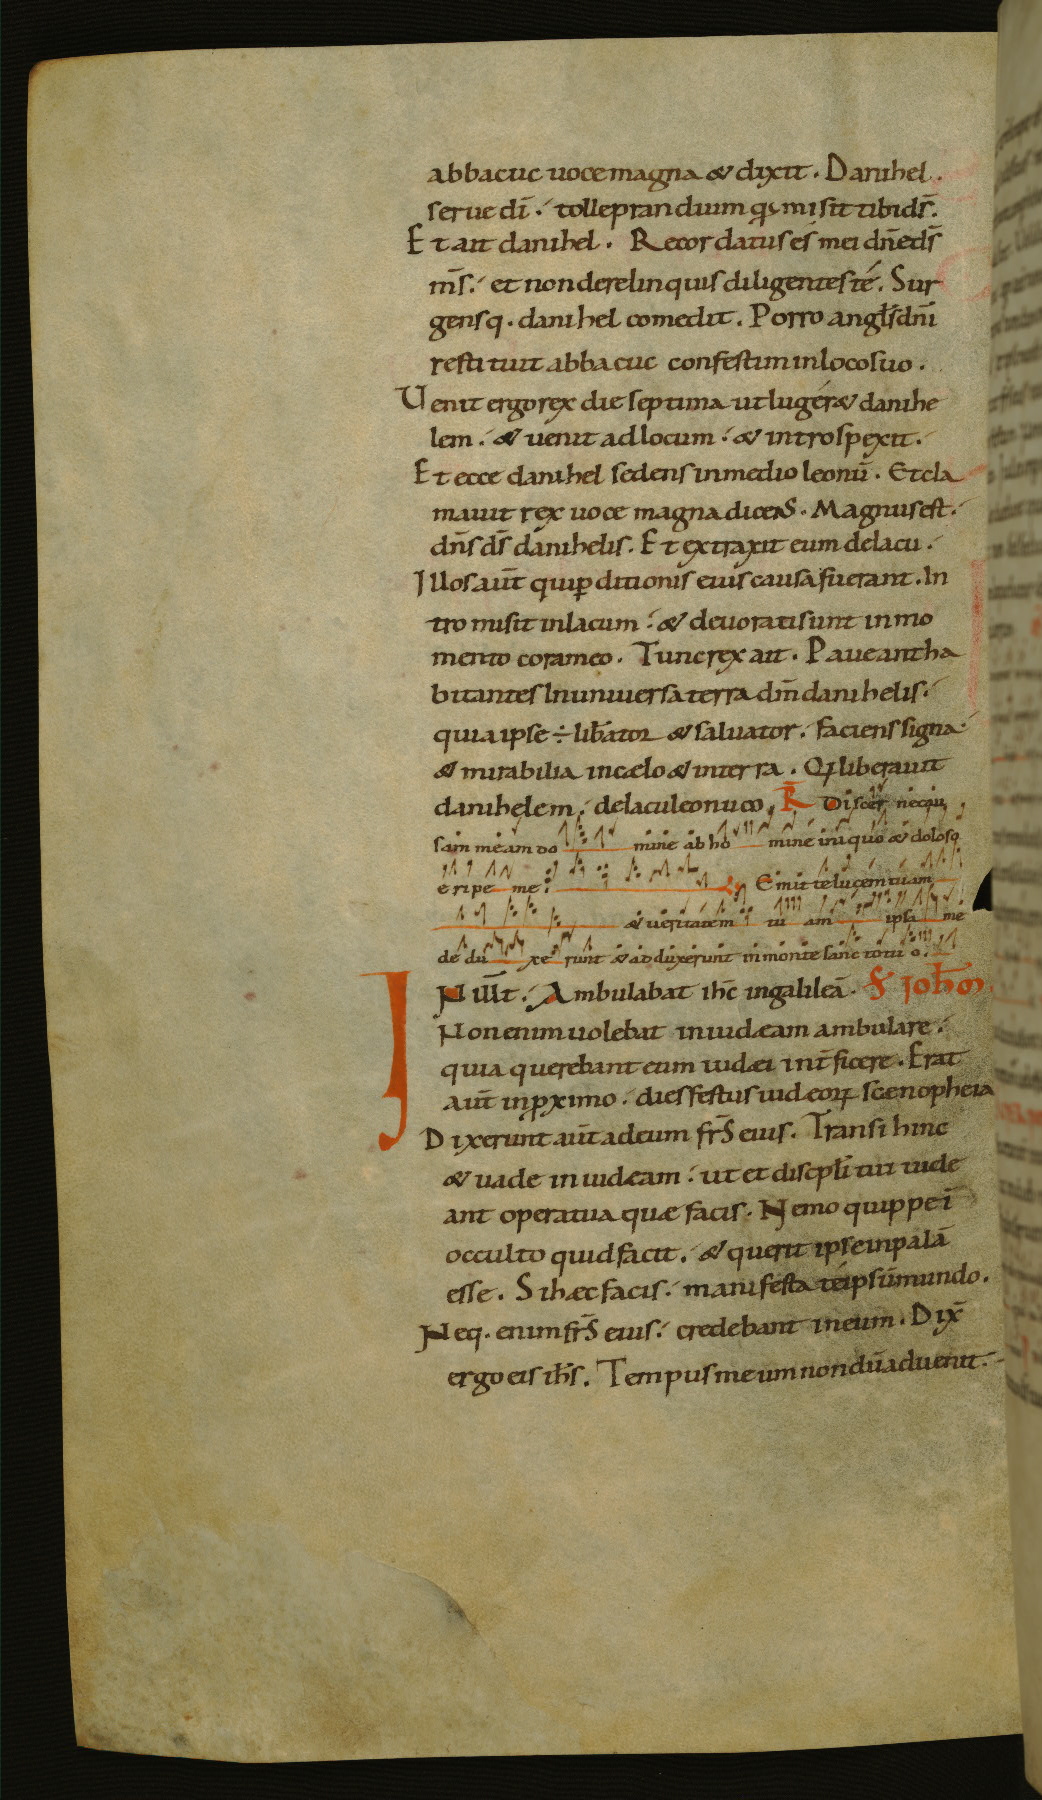 abbacuc uoce magna & dixit . Danihel .
serue dī . tolle prandium q; misit tibi d̄s .
Et ait danihel . Recordatus es mei dn̄e d̄s
m̄s . et non derelinquis diligentes te . Sur
gensq . danihel comedit . Porro angl̄s dn̄i
restituit abbacuc confestim in loco suo .
Uenit ergo rex die septima ut luger& danihe
lem . & uenit ad locum . & introspexit .
Et ecce danihel sedens in medio leonū . Et cla
mauit rex uoce magna dicens . Magnus est .
dn̄s d̄s danihelis . Et extraxit eum de lacu .
Illos aūt qui pditionis eius causa fuerant . In
tromisit in lacum . & deuorati sunt in mo
mento coram eo . Tunc rex ait . Paueant ha
bitantes In uniuersa terra dm̄ danihelis .
quia ipse ÷ lib̄ator & saluator . faciens signa
& mirabilia in cælo & in terra . Qui liberauit
danihelem . de lacu leonū co . R̄ Discer ne cau
sam meam do mine ab ho mine iniquo & doloso
eripe me . Emitte lucem tuam
& ueritatem tu am ipsa me
de du xe runt & adduxerunt in monte sanctū tuū
IN ill̄t . Ambulabat ih̄c in galileā . S̄ Ioh̄on
Non enim uolebat in iudæam ambulare .
quia querebant eum iudæi int̄ficere . Erat
aūt in pximo . dies festus iudæoꝝ scenopheia
Dixerunt aūt ad eum fr̄s eius . Transi hinc
& uade in iudæam . ut et discipl̄i tui uide
ant opera tua quæ facis . Nemo quippe ī
occulto quid facit . & querit ipse in palā
esse . Si hæc facis . manifesta te ipsū mundo .
Neq . enim fr̄s eius . credebant in eum . Dix̄
ergo eis ih̄s . Tempus meum nondū aduenit .